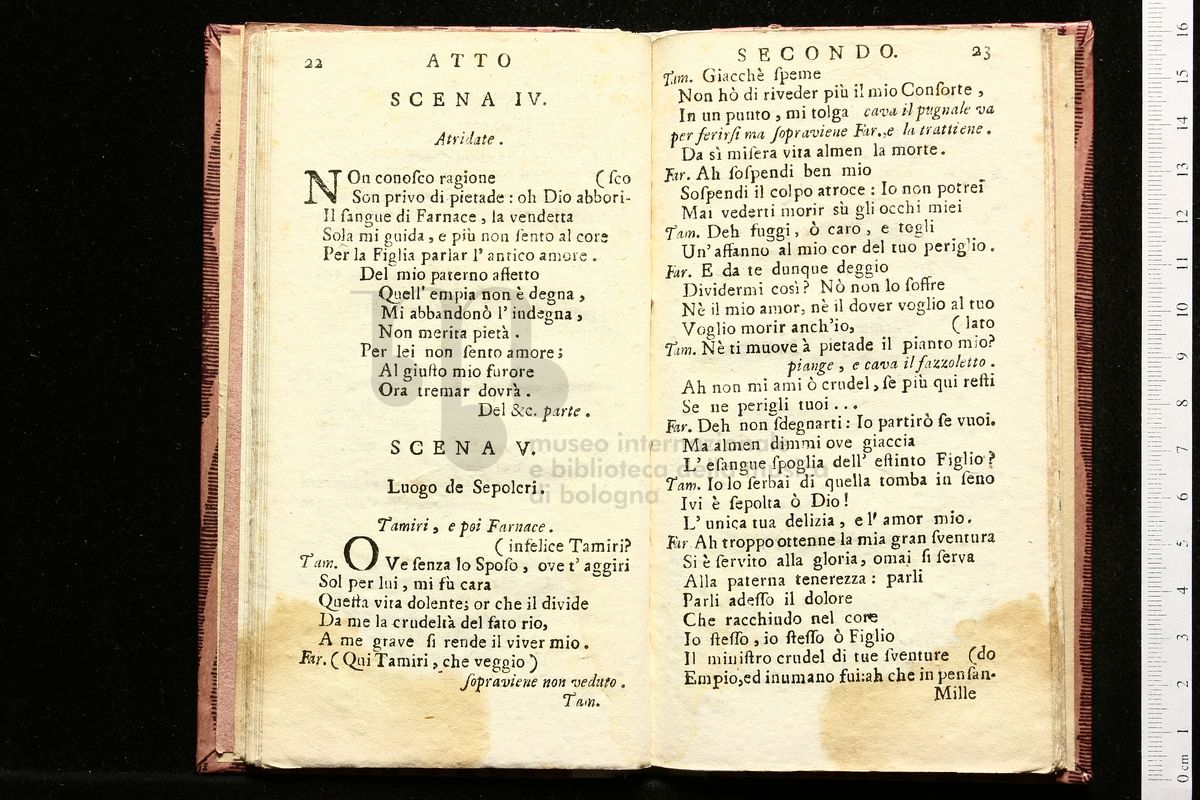 22 ATTO
SCENA IV.
Atridate.
NOn conoſco ragione (ſco
Son privo di pietade : oh Dio abbori-
Il ſangue di Farnace , la vendetta
Sola mi guida , e più non ſento al core
Per la Figlia parlar l' antico amore .
Del mio paterno affetto
Quell' empia non è degna ,
Mi abbandonò l' indegna ,
Non merita pietà .
Per lei non ſento amore ;
Al giuſto mio furore
Ora tremar dovrà .
Del &c. parte .
SCENA V.
Luogo de Sepolcri.
Tamiri , e poi Farnace .
( infelice Tamiri?
Tam. OVe ſenza lo Spoſo , ove t' aggiri
Sol per lui , mi fù cara
Queſta vita dolente; or che il divide
Da me la crudeltà del fato rio,
A me grave ſi rende il viver mio .
Far. ( Qui Tamiri , che veggio )
ſopraviene non veduto .
Tam.
SECONDO. 23
Tam. Giacchè ſpeme
Non hò di riveder più il mio Conſorte ,
In un punto , mi tolga cava il pugnale va
per ferirſi ma ſopraviene Far., e la trattiene .
Da sì miſera vita almen la morte .
Far. Ah ſoſpendi ben mio
Soſpendi il colpo atroce : Io non potrei
Mai vederti morir sù gli occhi miei
Tam. Deh fuggi , ò caro , e togli
Un' affanno al mio cor del tuo periglio .
Far. E da te dunque deggio
Dividermi così? Nò non lo ſoffre
Nè il mio amor, nè il dover voglio al tuo
Voglio morir anch'io, ( lato
Tam. Nè ti muove à pietade il pianto mio?
piange , e cava il fazzoletto .
Ah non mi ami ò crudel , ſe più qui reſti
Se ne perigli tuoi . . .
Far. Deh non ſdegnarti : Io partirò ſe vuoi.
Ma almen dimmi ove giaccia
L' eſangue ſpoglia dell' eſtinto Figlio ?
Tam. Io lo ſerbai di quella tomba in ſeno
Ivi è ſepolta ò Dio !
L' unica tua delizia , e l' amor mio .
Far Ah troppo ottenne la mia gran ſventura
Si è ſervito alla gloria, omai ſi ſerva
Alla paterna tenerezza : parli
Parli adeſſo il dolore
Che racchiudo nel core
Io ſteſſo , io ſteſſo ò Figlio
Il miniſtro crudel di tue ſventure (do
Empio,ed inumano fui:ah che in penſan-
Mille
museo internazionale
e biblioteca della musica
di bologna
0 cm 1 2 3 4 5 6 7 8 9 10 11 12 13 14 15 16